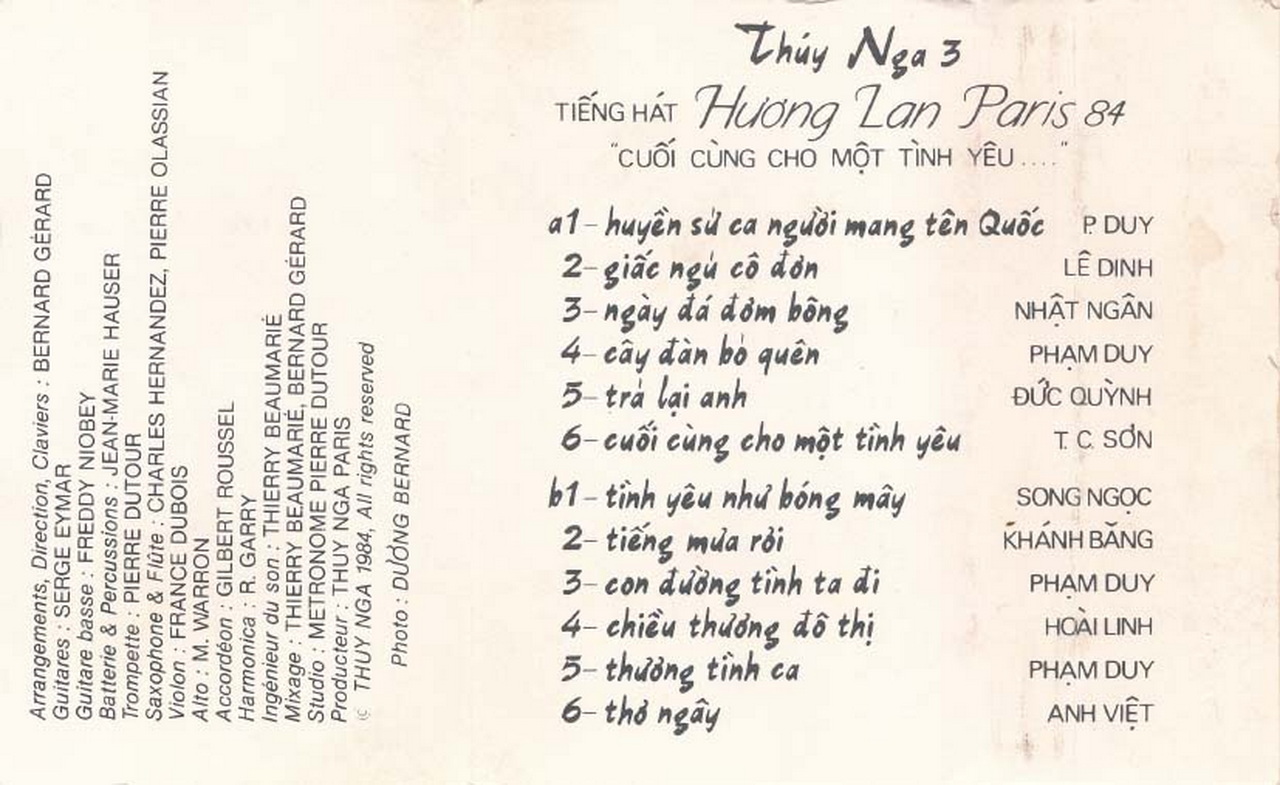 Thúy Nga 3
TIẾNG HÁT Hương Lan Paris 84
"CUỐI CÙNG CHO MỘT TÌNH YÊU...."
a1- huyền sử ca người mang tên Quốc P. DUY
2- giấc ngủ cô đơn LÊ DINH
3- ngày đá đơm bông NHẬT NGÂN
4- cây đàn bỏ quên PHẠM DUY
5- trả lại anh ĐỨC QUỲNH
6- cuối cùng cho một tình yêu T. C. SƠN
b1- tình yêu như bóng mây SONG NGỌC
2- tiếng mưa rơi KHÁNH BĂNG
3- con đường tình ta đi PHẠM DUY
4- chiều thương đô thị HOÀI LINH
5- thương tình ca PHẠM DUY
6- thơ ngây ANH VIỆT
Arrangements, Direction, Claviers : BERNARD GÉRARD
Guitares : SERGE EYMAR
Guitare basse : FREDDY NIOBEY
Batterie & Percussions : JEAN-MARIE HAUSER
Trompette : PIERRE DUTOUR
Saxophone & Flûte : CHARLES HERNANDEZ, PIERRE OLASSIAN
Violon : FRANCE DUBOIS
Alto : M. WARRON
Accordéon : GILBERT ROUSSEL
Harmonica : R. GARRY
Ingénieur du son : THIERRY BEAUMARIÉ
Mixage : THIERRY BEAUMARIÉ, BERNARD GÉRARD
Studio : METRONOME PIERRE DUTOUR
Producteur : THUY NGA PARIS
© THUY NGA 1984, All rights reserved
Photo : DƯƠNG BERNARD